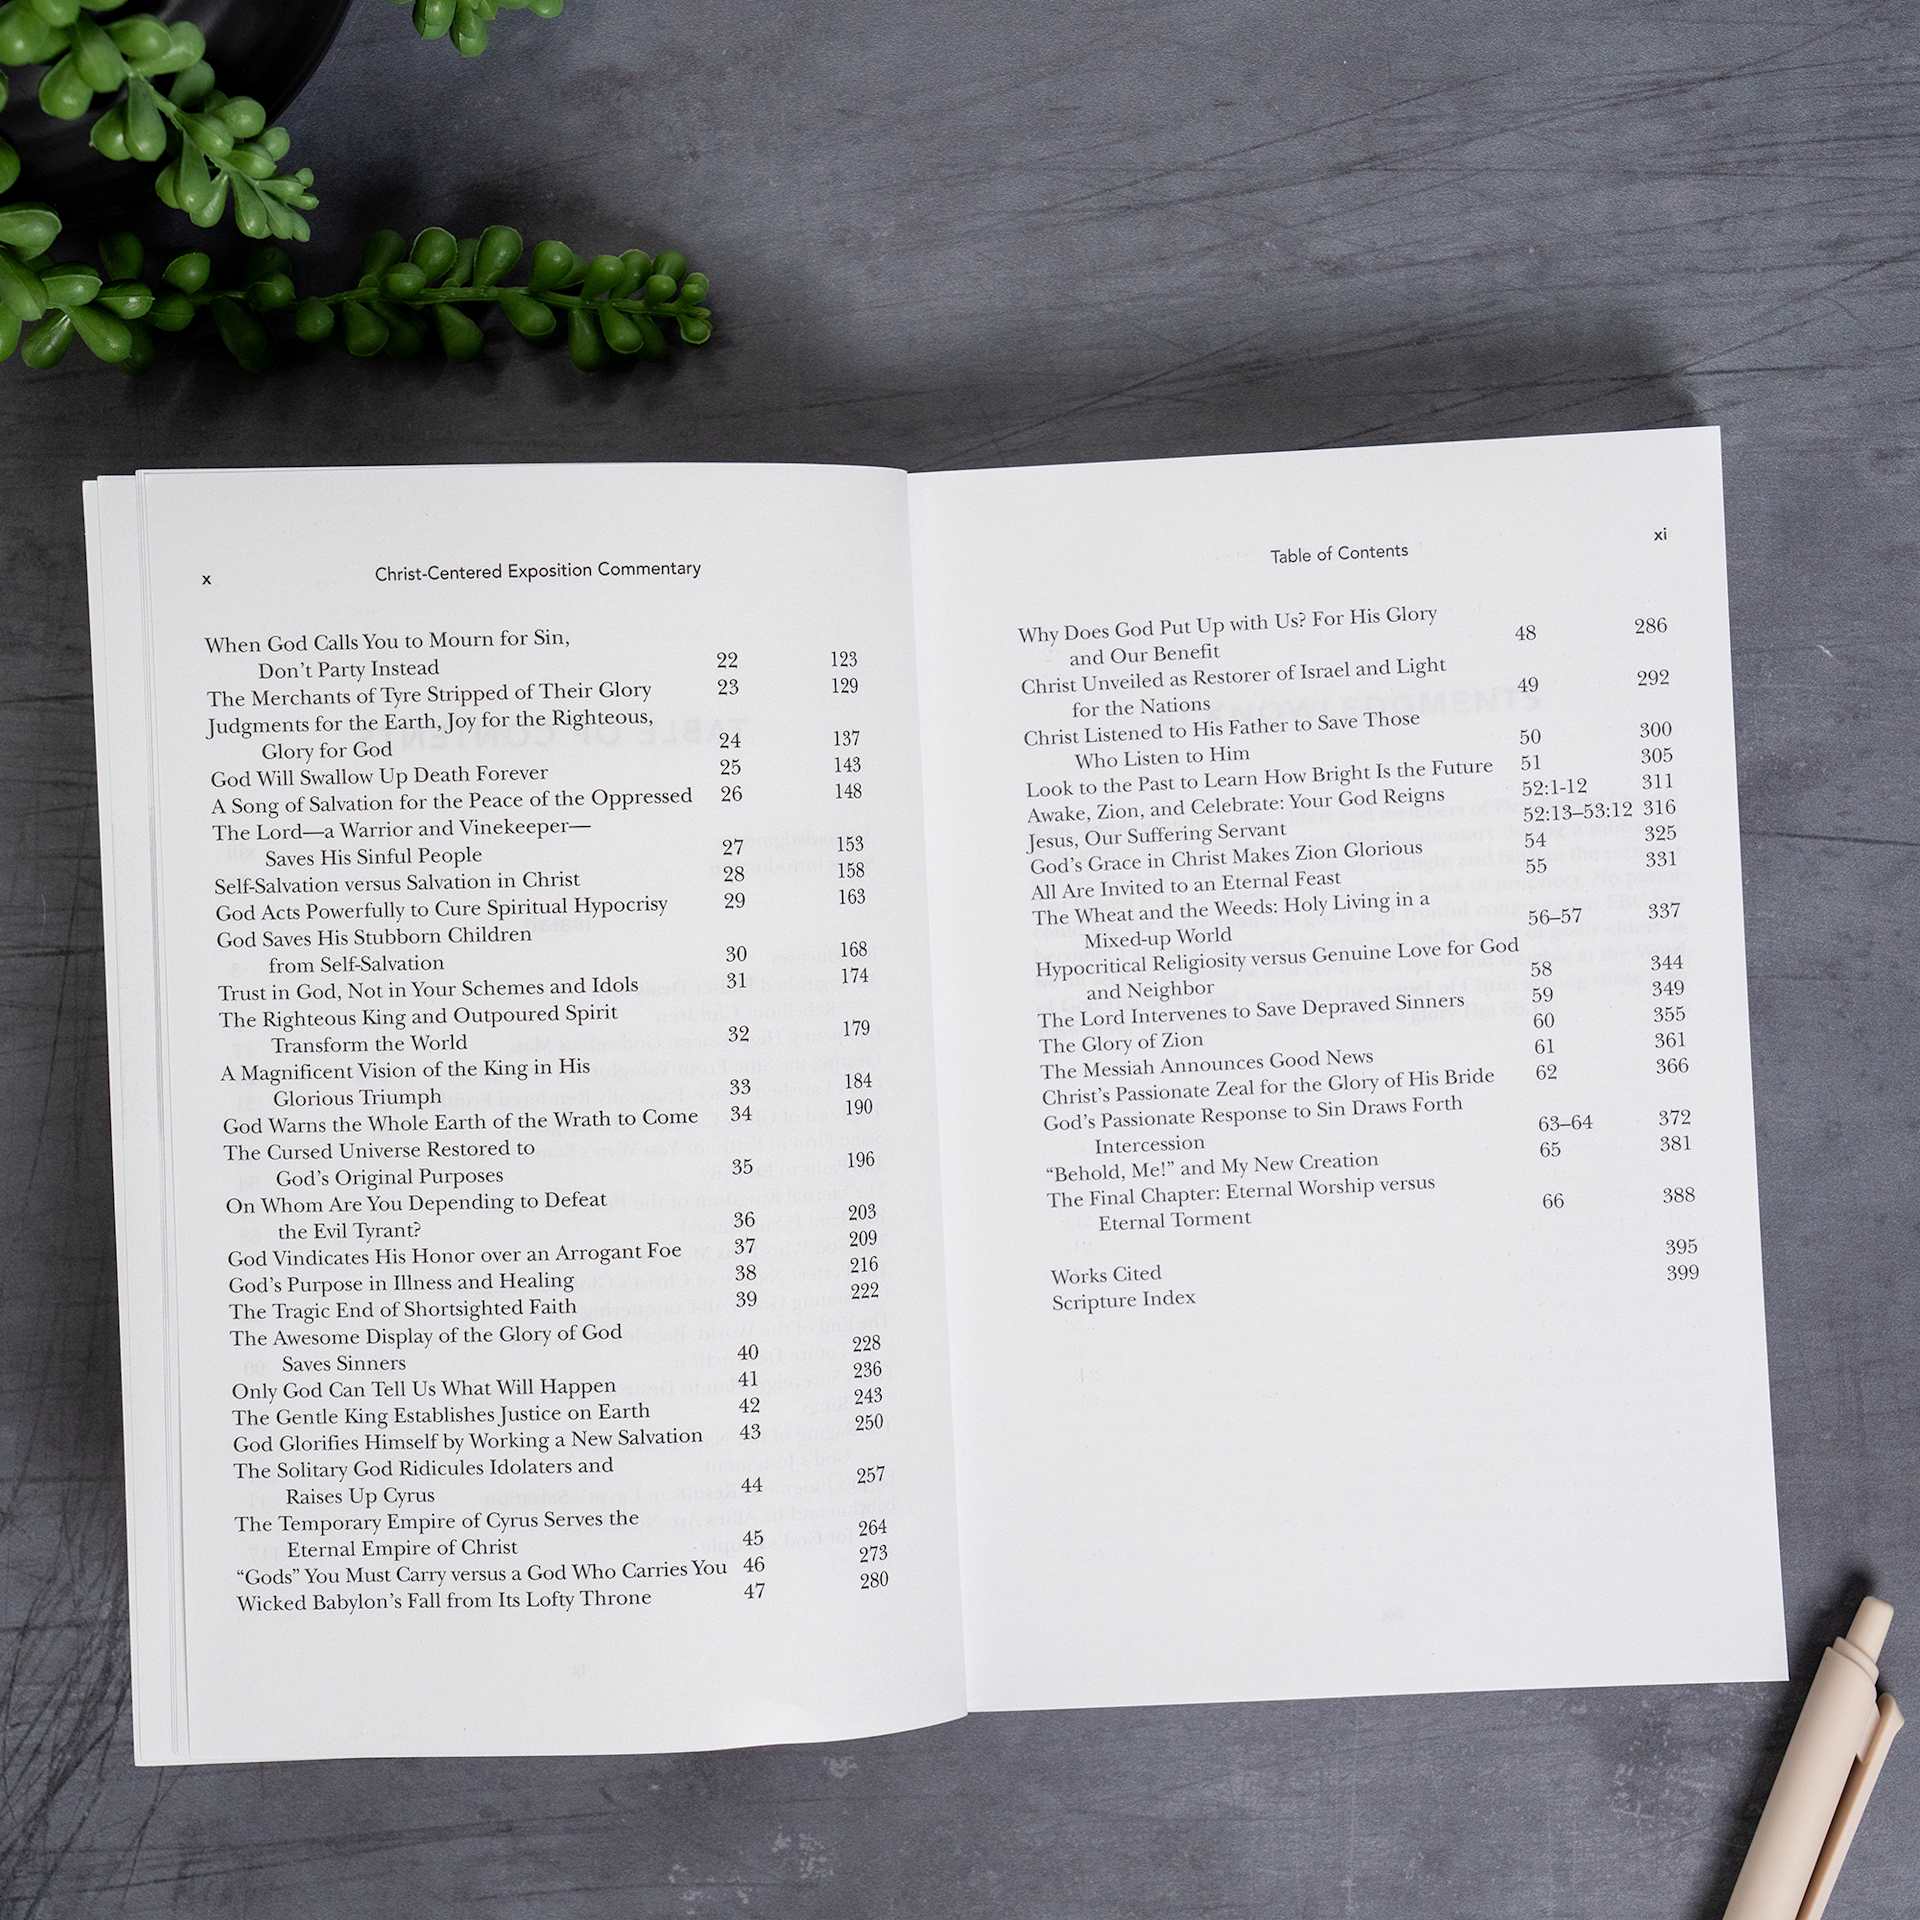 x Christ-Centered Exposition Commentary
When God Calls You to Mourn for Sin,
Don't Party Instead 22 123
The Merchants of Tyre Stripped of Their Glory 23 129
Judgments for the Earth, Joy for the Righteous,
Glory for God 24 137
God Will Swallow Up Death Forever 25 143
A Song of Salvation for the Peace of the Oppressed 26 148
The Lord—a Warrior and Vinekeeper—
Saves His Sinful People 27 153
Self-Salvation versus Salvation in Christ 28 158
God Acts Powerfully to Cure Spiritual Hypocrisy 29 163
God Saves His Stubborn Children
from Self-Salvation 30 168
Trust in God, Not in Your Schemes and Idols 31 174
The Righteous King and Outpoured Spirit
Transform the World 32 179
A Magnificent Vision of the King in His
Glorious Triumph 33 184
God Warns the Whole Earth of the Wrath to Come 34 190
The Cursed Universe Restored to
God's Original Purposes 35 196
On Whom Are You Depending to Defeat
the Evil Tyrant? 36 203
God Vindicates His Honor over an Arrogant Foe 37 209
God's Purpose in Illness and Healing 38 216
The Tragic End of Shortsighted Faith 39 222
The Awesome Display of the Glory of God
Saves Sinners 40 228
Only God Can Tell Us What Will Happen 41 236
The Gentle King Establishes Justice on Earth 42 243
God Glorifies Himself by Working a New Salvation 43 250
The Solitary God Ridicules Idolaters and
Raises Up Cyrus 44 257
The Temporary Empire of Cyrus Serves the
Eternal Empire of Christ 45 264
“Gods” You Must Carry versus a God Who Carries You 46 273
Wicked Babylon's Fall from Its Lofty Throne 47 280
Table of Contents xi
Why Does God Put Up with Us? For His Glory
and Our Benefit 48 286
Christ Unveiled as Restorer of Israel and Light
for the Nations 49 292
Christ Listened to His Father to Save Those
Who Listen to Him 50 300
Look to the Past to Learn How Bright Is the Future 51 305
Awake, Zion, and Celebrate: Your God Reigns 52:1-12 311
Jesus, Our Suffering Servant 52:13–53:12 316
God's Grace in Christ Makes Zion Glorious 54 325
All Are Invited to an Eternal Feast 55 331
The Wheat and the Weeds: Holy Living in a
Mixed-up World 56–57 337
Hypocritical Religiosity versus Genuine Love for God
and Neighbor 58 344
The Lord Intervenes to Save Depraved Sinners 59 349
The Glory of Zion 60 355
The Messiah Announces Good News 61 361
Christ's Passionate Zeal for the Glory of His Bride 62 366
God's Passionate Response to Sin Draws Forth
Intercession 63–64 372
“Behold, Me!” and My New Creation 65 381
The Final Chapter: Eternal Worship versus
Eternal Torment 66 388
Works Cited 395
Scripture Index 399